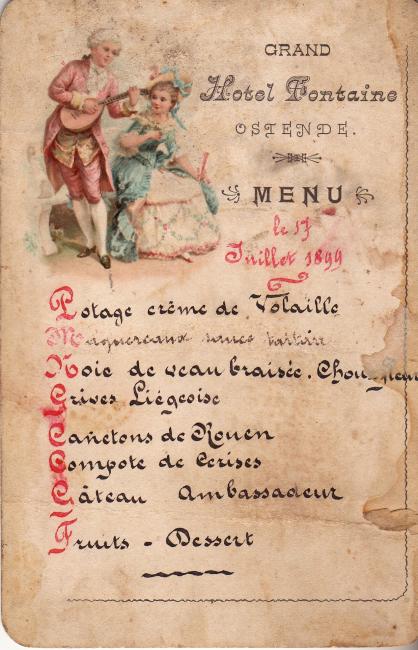 GRAND
Hotel Fontaine
OSTENDE.
MENU
le 17
Juillet 1899
Potage crême de Volaille
Maquereaux sauce tartare
Noie de veau braisée.
Grives Liégeoise
Canetons de Rouen
Compote de Cerises
Gâteau Ambassadeur
Fruits - Dessert